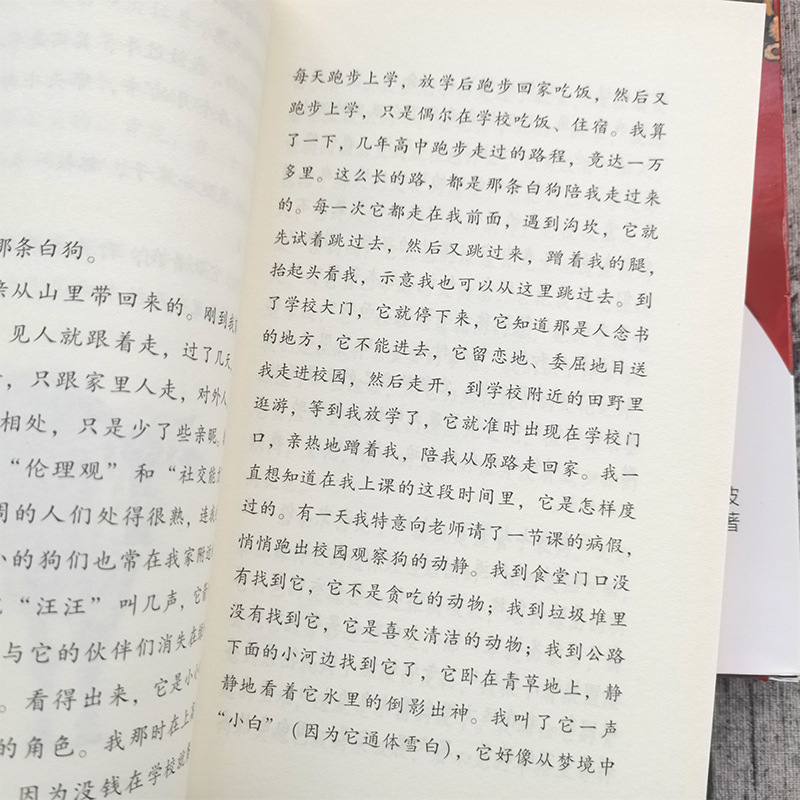 那条白狗。
亲从山里带回来的。刚到我
见人就跟着走，过了几天
，只跟家里人走，对外人
相处，只是少了些亲昵。
“伦理观”和“社交能
周的人们处得很熟，连
小的狗们也常在我家附近
“汪汪”叫几声，它
与它的伙伴们消失在
。看得出来，它是小
的角色。我那时在上高
因为没钱在学校就
每天跑步上学，放学后跑步回家吃饭，然后又
跑步上学，只是偶尔在学校吃饭、住宿。我算
了一下，几年高中跑步走过的路程，竟达一万
多里。这么长的路，都是那条白狗陪我走过来
的。每一次它都走在我前面，遇到沟坎，它就
先试着跳过去，然后又跳过来，蹭着我的腿，
抬起头看我，示意我也可以从这里跳过去。到
了学校大门，它就停下来，它知道那是人念书
的地方，它不能进去，它留恋地、委屈地目送
我走进校园，然后走开，到学校附近的田野里
逛游，等到我放学了，它就准时出现在学校门
口，亲热地蹭着我，陪我从原路走回家。我一
直想知道在我上课的这段时间里，它是怎样度
过的。有一天我特意向老师请了一节课的病假，
悄悄跑出校园观察狗的动静。我到食堂门口没
有找到它，它不是贪吃的动物；我到垃圾堆里
没有找到它，它是喜欢清洁的动物；我到公路
下面的小河边找到它了，它卧在青草地上，静
静地看着它水里的倒影出神。我叫了它一声
“小白”（因为它通体雪白），它好像从梦境中
著